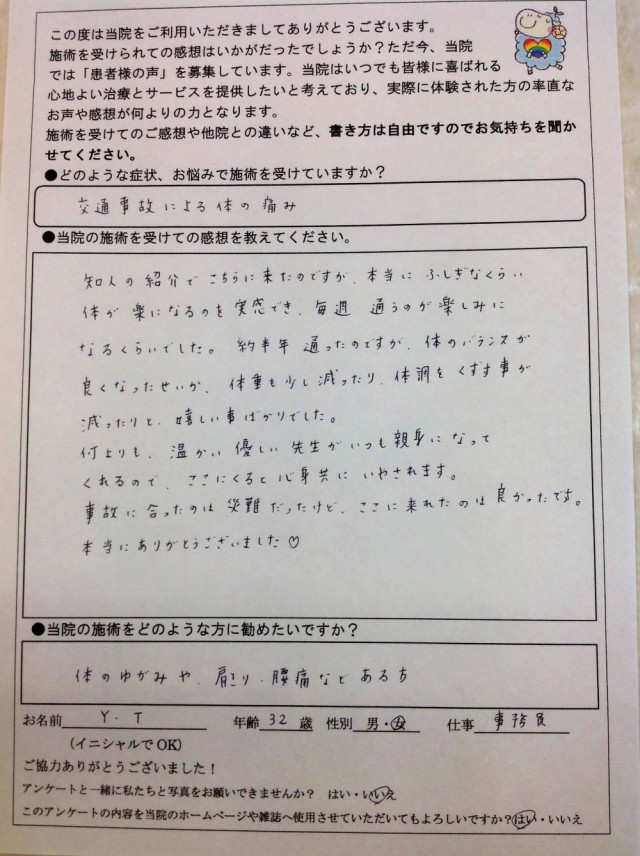 この度は当院をご利用いただきましてありがとうございます。
施術を受けられての感想はいかがだったでしょうか？ただ今、当院
では「患者様の声」を募集しています。当院はいつでも皆様に喜ばれる
心地よい治療とサービスを提供したいと考えており、実際に体験された方の率直な
お声や感想が何よりの力となります。
施術を受けてのご感想や他院との違いなど、書き方は自由ですのでお気持ちを聞か
せてください。
●どのような症状、お悩みで施術を受けていますか？
交通事故による体の痛み
●当院の施術を受けての感想を教えてください。
知人の紹介でこちらに来たのですが、本当にふしぎなくらい
体が楽になるのを実感でき、毎週 通うのが楽しみに
なるくらいでした。約半年通ったのですが、体のバランスが
良くなったせいか、体重も少し減ったり、体調をくずす事が
減ったりと、嬉しい事ばかりでした。
何よりも、温かい優しい先生がいつも親身になって
くれるので、ここにくると心身共にいやされます。
事故に合ったのは災難だったけど、ここに来れたのは良かったです。
本当にありがとうございました♡
●当院の施術をどのような方に勧めたいですか？
体のゆがみや、肩こり、腰痛などある方
お名前 Y．T 年齢 32 歳 性別 男・女 仕事 事務員
（イニシャルでOK）
ご協力ありがとうございました！
アンケートと一緒に私たちと写真をお願いできませんか？ はい・いいえ
このアンケートの内容を当院のホームページや雑誌へ使用させていただいてもよろしいですか？はい・いいえ